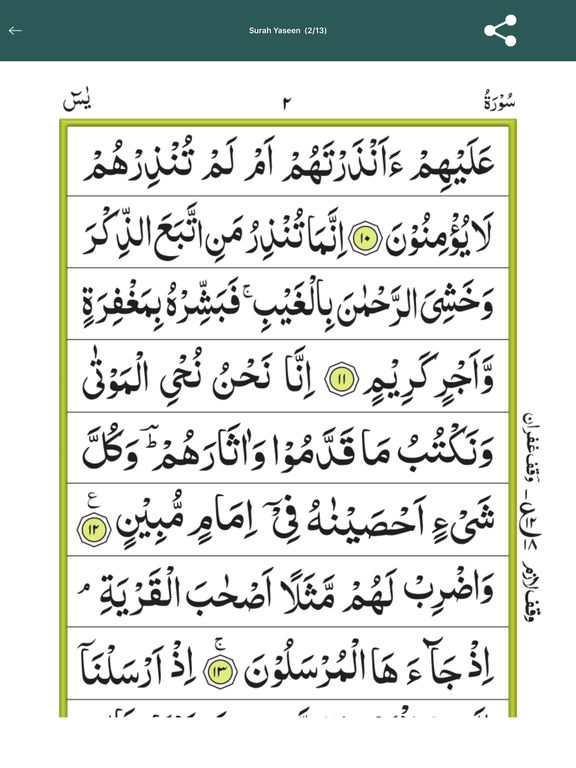 Surah Yaseen (2/13)
سُوْرَةُ ٢ يٰسٓ
عَلَيْهِمْ ءَاَنْذَرْتَهُمْ اَمْ لَمْ تُنْذِرْهُمْ
لَا يُؤْمِنُوْنَ ١٠ اِنَّمَا تُنْذِرُ مَنِ اتَّبَعَ الذِّكْرَ
وَخَشِیَ الرَّحْمٰنَ بِالْغَيْبِ ۚ فَبَشِّرْهُ بِمَغْفِرَةٍ
وَّاَجْرٍ كَرِيْمٍ ١١ اِنَّا نَحْنُ نُحْیِ الْمَوْتٰى
وَنَكْتُبُ مَا قَدَّمُوْا وَاٰثَارَهُمْ ؕ وَكُلَّ
شَیْءٍ اَحْصَيْنٰهُ فِیْۤ اِمَامٍ مُّبِيْنٍ ١٢ ع
وَاضْرِبْ لَهُمْ مَّثَلًا اَصْحٰبَ الْقَرْيَةِ ۘ
اِذْ جَآءَ هَا الْمُرْسَلُوْنَ ١٣ ۚ اِذْ اَرْسَلْنَاۤ
وقف غفران
وقف لازم